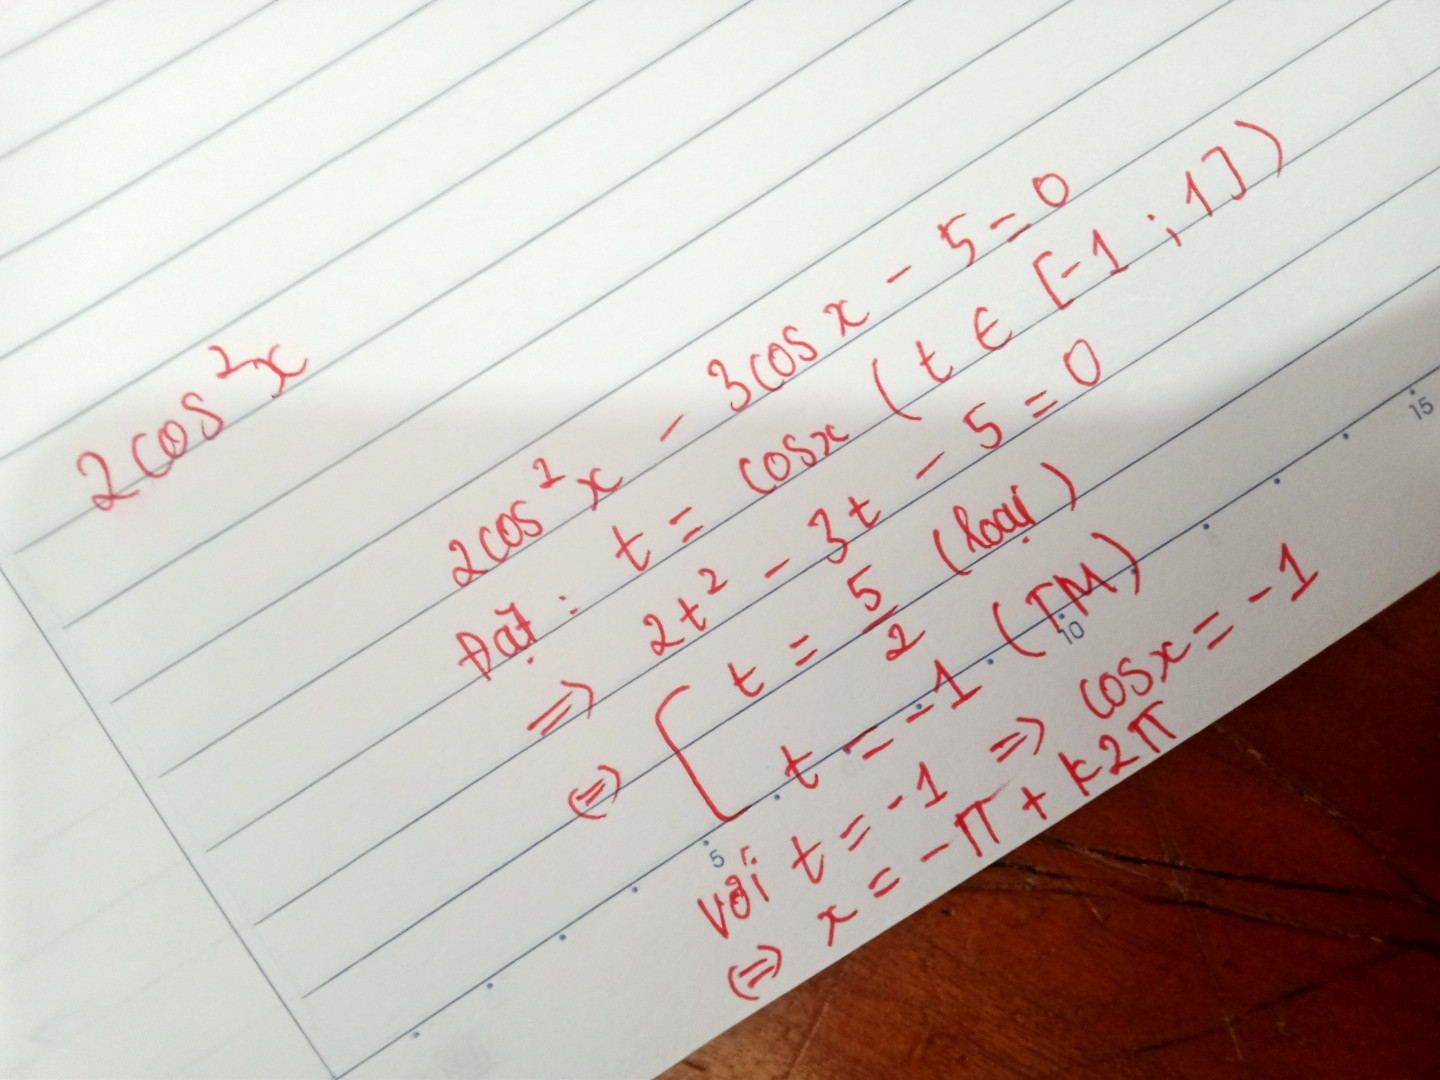 2cos²x
2cos²x - 3cosx - 5 = 0
Đặt : t = cosx ( t ∈ [-1 ; 1] )
=> 2t² - 3t - 5 = 0
<=> [ t = 5/2 (loại)
t = -1 (TM)
với t = -1 => cosx = -1
<=> x = -π + k2π
5 10 15